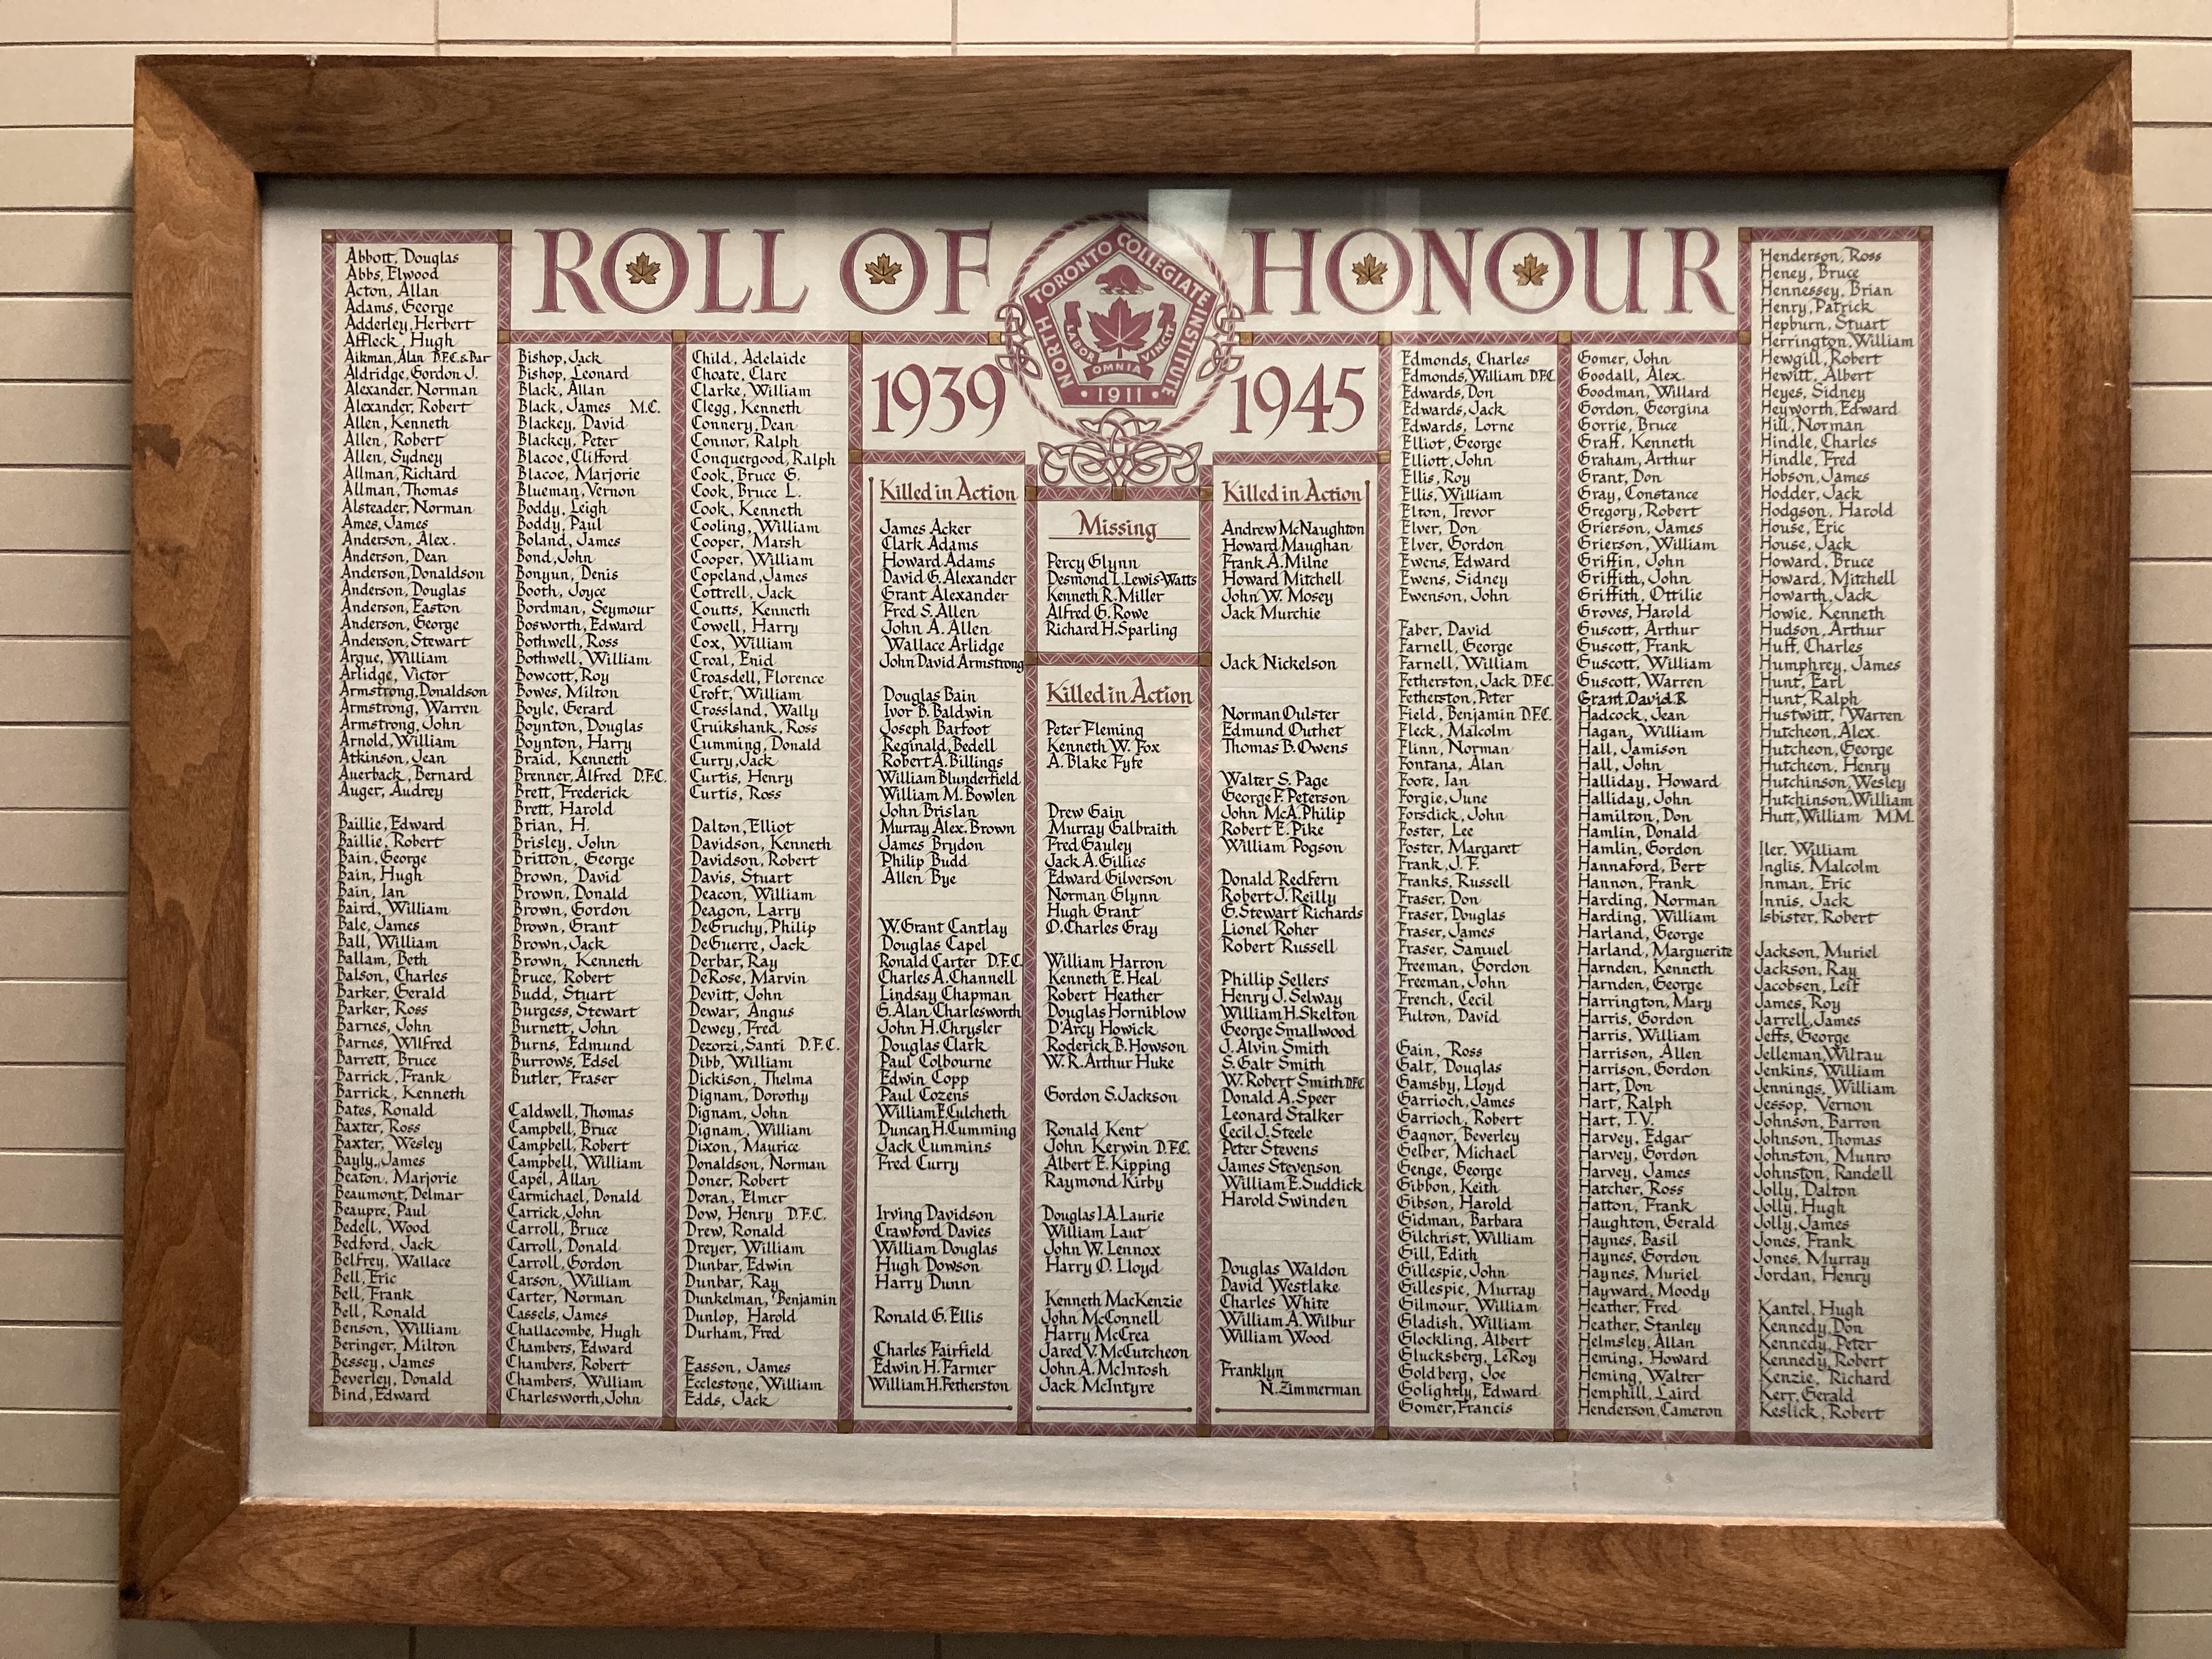 ROLL OF HONOUR
NORTH TORONTO COLLEGIATE INSTITUTE
LABOR OMNIA VINCIT
• 1911 •
1939
1945
Abbott, Douglas
Abbs, Elwood
Acton, Allan
Adams, George
Adderley, Herbert
Affleck, Hugh
Aikman, Alan D.F.C. & Bar
Aldridge, Gordon J.
Alexander, Norman
Alexander, Robert
Allen, Kenneth
Allen, Robert
Allen, Sydney
Allman, Richard
Allman, Thomas
Alsteader, Norman
Ames, James
Anderson, Alex.
Anderson, Dean
Anderson, Donaldson
Anderson, Douglas
Anderson, Easton
Anderson, George
Anderson, Stewart
Argue, William
Arlidge, Victor
Armstrong, Donaldson
Armstrong, Warren
Armstrong, John
Arnold, William
Atkinson, Jean
Auerback, Bernard
Auger, Audrey
Baillie, Edward
Baillie, Robert
Bain, George
Bain, Hugh
Bain, Ian
Baird, William
Bale, James
Ball, William
Ballam, Beth
Balson, Charles
Barker, Gerald
Barker, Ross
Barnes, John
Barnes, Wilfred
Barrett, Bruce
Barrick, Frank
Barrick, Kenneth
Bates, Ronald
Baxter, Ross
Baxter, Wesley
Bayly, James
Beaton, Marjorie
Beaumont, Delmar
Beaupre, Paul
Bedell, Wood
Bedford, Jack
Belfrey, Wallace
Bell, Eric
Bell, Frank
Bell, Ronald
Benson, William
Beringer, Milton
Bessey, James
Beverley, Donald
Bind, Edward
Bishop, Jack
Bishop, Leonard
Black, Allan
Black, James M.C.
Blackey, David
Blackey, Peter
Blacoe, Clifford
Blacoe, Marjorie
Blueman, Vernon
Boddy, Leigh
Boddy, Paul
Boland, James
Bond, John
Bonyun, Denis
Booth, Joyce
Bordman, Seymour
Bosworth, Edward
Bothwell, Ross
Bothwell, William
Bowcott, Roy
Bowes, Milton
Boyle, Gerard
Boynton, Douglas
Boynton, Harry
Braid, Kenneth
Brenner, Alfred D.F.C.
Brett, Frederick
Brett, Harold
Brian, H.
Brisley, John
Britton, George
Brown, David
Brown, Donald
Brown, Gordon
Brown, Grant
Brown, Jack
Brown, Kenneth
Bruce, Robert
Budd, Stuart
Burgess, Stewart
Burnett, John
Burns, Edmund
Burrows, Edsel
Butler, Fraser
Caldwell, Thomas
Campbell, Bruce
Campbell, Robert
Campbell, William
Capel, Allan
Carmichael, Donald
Carrick, John
Carroll, Bruce
Carroll, Donald
Carroll, Gordon
Carson, William
Carter, Norman
Cassels, James
Challacombe, Hugh
Chambers, Edward
Chambers, Robert
Chambers, William
Charlesworth, John
Child, Adelaide
Choate, Clare
Clarke, William
Clegg, Kenneth
Connery, Dean
Connor, Ralph
Conquergood, Ralph
Cook, Bruce G.
Cook, Bruce L.
Cook, Kenneth
Cooling, William
Cooper, Marsh
Cooper, William
Copeland, James
Cottrell, Jack
Coutts, Kenneth
Cowell, Harry
Cox, William
Croal, Enid
Croasdell, Florence
Croft, William
Crossland, Wally
Cruikshank, Ross
Cumming, Donald
Curry, Jack
Curtis, Henry
Curtis, Ross
Dalton, Elliot
Davidson, Kenneth
Davidson, Robert
Davis, Stuart
Deacon, William
Deagon, Larry
DeGruchy, Philip
DeGuerre, Jack
Derbar, Ray
DeRose, Marvin
Devitt, John
Dewar, Angus
Dewey, Fred
Dezorzi, Santi D.F.C.
Dibb, William
Dickison, Thelma
Dignam, Dorothy
Dignam, John
Dignam, William
Dixon, Maurice
Donaldson, Norman
Doner, Robert
Doran, Elmer
Dow, Henry D.F.C.
Drew, Ronald
Dreyer, William
Dunbar, Edwin
Dunbar, Ray
Dunkelman, Benjamin
Dunlop, Harold
Durham, Fred
Easson, James
Ecclestone, William
Edds, Jack
Killed in Action
James Acker
Clark Adams
Howard Adams
David G. Alexander
Grant Alexander
Fred S. Allen
John A. Allen
Wallace Arlidge
John David Armstrong
Douglas Bain
Ivor B. Baldwin
Joseph Barfoot
Reginald Bedell
Robert A. Billings
William Blunderfield
William M. Bowlen
John Brislan
Murray Alex. Brown
James Brydon
Philip Budd
Allen Bye
W. Grant Cantlay
Douglas Capel
Ronald Carter D.F.C.
Charles A. Channell
Lindsay Chapman
G. Alan Charlesworth
John H. Chrysler
Douglas Clark
Paul Colbourne
Edwin Copp
Paul Cozens
William F. Culcheth
Duncan H. Cumming
Jack Cummins
Fred Curry
Irving Davidson
Crawford Davies
William Douglas
Hugh Dowson
Harry Dunn
Ronald G. Ellis
Charles Fairfield
Edwin H. Farmer
William H. Fetherston
Missing
Percy Glynn
Desmond L. Lewis-Watts
Kenneth R. Miller
Alfred G. Rowe
Richard H. Sparling
Killed in Action
Peter Fleming
Kenneth W. Fox
A. Blake Fyfe
Drew Gain
Murray Galbraith
Fred Gauley
Jack A. Gillies
Edward Gilverson
Norman Glynn
Hugh Grant
O. Charles Gray
William Harron
Kenneth E. Heal
Robert Heather
Douglas Horniblow
D'Arcy Howick
Roderick B. Howson
W. R. Arthur Huke
Gordon S. Jackson
Ronald Kent
John Kerwin D.F.C.
Albert E. Kipping
Raymond Kirby
Douglas I.A. Laurie
William Laut
John W. Lennox
Harry O. Lloyd
Kenneth MacKenzie
John McConnell
Harry McCrea
Jared V. McCutcheon
John A. McIntosh
Jack McIntyre
Killed in Action
Andrew McNaughton
Howard Maughan
Frank A. Milne
Howard Mitchell
John W. Mosey
Jack Murchie
Jack Nickelson
Norman Oulster
Edmund Outhet
Thomas B. Owens
Walter S. Page
George F. Peterson
John McA. Philip
Robert E. Pike
William Pogson
Donald Redfern
Robert J. Reilly
G. Stewart Richards
Lionel Roher
Robert Russell
Phillip Sellers
Henry J. Selway
William H. Skelton
George Smallwood
J. Alvin Smith
S. Galt Smith
W. Robert Smith D.F.C.
Donald A. Speer
Leonard Stalker
Cecil J. Steele
Peter Stevens
James Stevenson
William E. Suddick
Harold Swinden
Douglas Waldon
David Westlake
Charles White
William A. Wilbur
William Wood
Franklyn
N. Zimmerman
Edmonds, Charles
Edmonds, William D.F.C.
Edwards, Don
Edwards, Jack
Edwards, Lorne
Elliot, George
Elliott, John
Ellis, Roy
Ellis, William
Elton, Trevor
Elver, Don
Elver, Gordon
Ewens, Edward
Ewens, Sidney
Ewenson, John
Faber, David
Farnell, George
Farnell, William
Fetherston, Jack D.F.C.
Fetherston, Peter
Field, Benjamin D.F.C.
Fleck, Malcolm
Flinn, Norman
Fontana, Alan
Foote, Ian
Forgie, June
Forsdick, John
Foster, Lee
Foster, Margaret
Frank, J. F.
Franks, Russell
Fraser, Don
Fraser, Douglas
Fraser, James
Fraser, Samuel
Freeman, Gordon
Freeman, John
French, Cecil
Fulton, David
Gain, Ross
Galt, Douglas
Gamsby, Lloyd
Garrioch, James
Garrioch, Robert
Gagnor, Beverley
Gelber, Michael
Genge, George
Gibbon, Keith
Gibson, Harold
Gidman, Barbara
Gilchrist, William
Gill, Edith
Gillespie, John
Gillespie, Murray
Gilmour, William
Gladish, William
Glockling, Albert
Glucksberg, LeRoy
Goldberg, Joe
Golightly, Edward
Gomer, Francis
Gomer, John
Goodall, Alex.
Goodman, Willard
Gordon, Georgina
Gorrie, Bruce
Graff, Kenneth
Graham, Arthur
Grant, Don
Gray, Constance
Gregory, Robert
Grierson, James
Grierson, William
Griffin, John
Griffith, John
Griffith, Ottilie
Groves, Harold
Guscott, Arthur
Guscott, Frank
Guscott, William
Guscott, Warren
Grant David R
Hadcock, Jean
Hagan, William
Hall, Jamison
Hall, John
Halliday, Howard
Halliday, John
Hamilton, Don
Hamlin, Donald
Hamlin, Gordon
Hannaford, Bert
Hannon, Frank
Harding, Norman
Harding, William
Harland, George
Harland, Marguerite
Harnden, Kenneth
Harnden, George
Harrington, Mary
Harris, Gordon
Harris, William
Harrison, Allen
Harrison, Gordon
Hart, Don
Hart, Ralph
Hart, T.V.
Harvey, Edgar
Harvey, Gordon
Harvey, James
Hatcher, Ross
Hatton, Frank
Haughton, Gerald
Haynes, Basil
Haynes, Gordon
Haynes, Muriel
Hayward, Moody
Heather, Fred
Heather, Stanley
Helmsley, Allan
Heming, Howard
Heming, Walter
Hemphill, Laird
Henderson, Cameron
Henderson, Ross
Heney, Bruce
Hennessey, Brian
Henry, Patrick
Hepburn, Stuart
Herrington, William
Hewgill, Robert
Hewitt, Albert
Heyes, Sidney
Heyworth, Edward
Hill, Norman
Hindle, Charles
Hindle, Fred
Hobson, James
Hodder, Jack
Hodgson, Harold
House, Eric
House, Jack
Howard, Bruce
Howard, Mitchell
Howarth, Jack
Howie, Kenneth
Hudson, Arthur
Huff, Charles
Humphrey, James
Hunt, Earl
Hunt, Ralph
Hustwitt, Warren
Hutcheon, Alex.
Hutcheon, George
Hutcheon, Henry
Hutchinson, Wesley
Hutchinson, William
Hutt, William M.M.
Iler, William
Inglis, Malcolm
Inman, Eric
Innis, Jack
Isbister, Robert
Jackson, Muriel
Jackson, Ray
Jacobsen, Leif
James, Roy
Jarrell, James
Jeffs, George
Jelleman, Wiltau
Jenkins, William
Jennings, William
Jessop, Vernon
Johnson, Barron
Johnson, Thomas
Johnston, Munro
Johnston, Randell
Jolly, Dalton
Jolly, Hugh
Jolly, James
Jones, Frank
Jones, Murray
Jordan, Henry
Kantel, Hugh
Kennedy, Don
Kennedy, Peter
Kennedy, Robert
Kenzie, Richard
Kerr, Gerald
Keslick, Robert